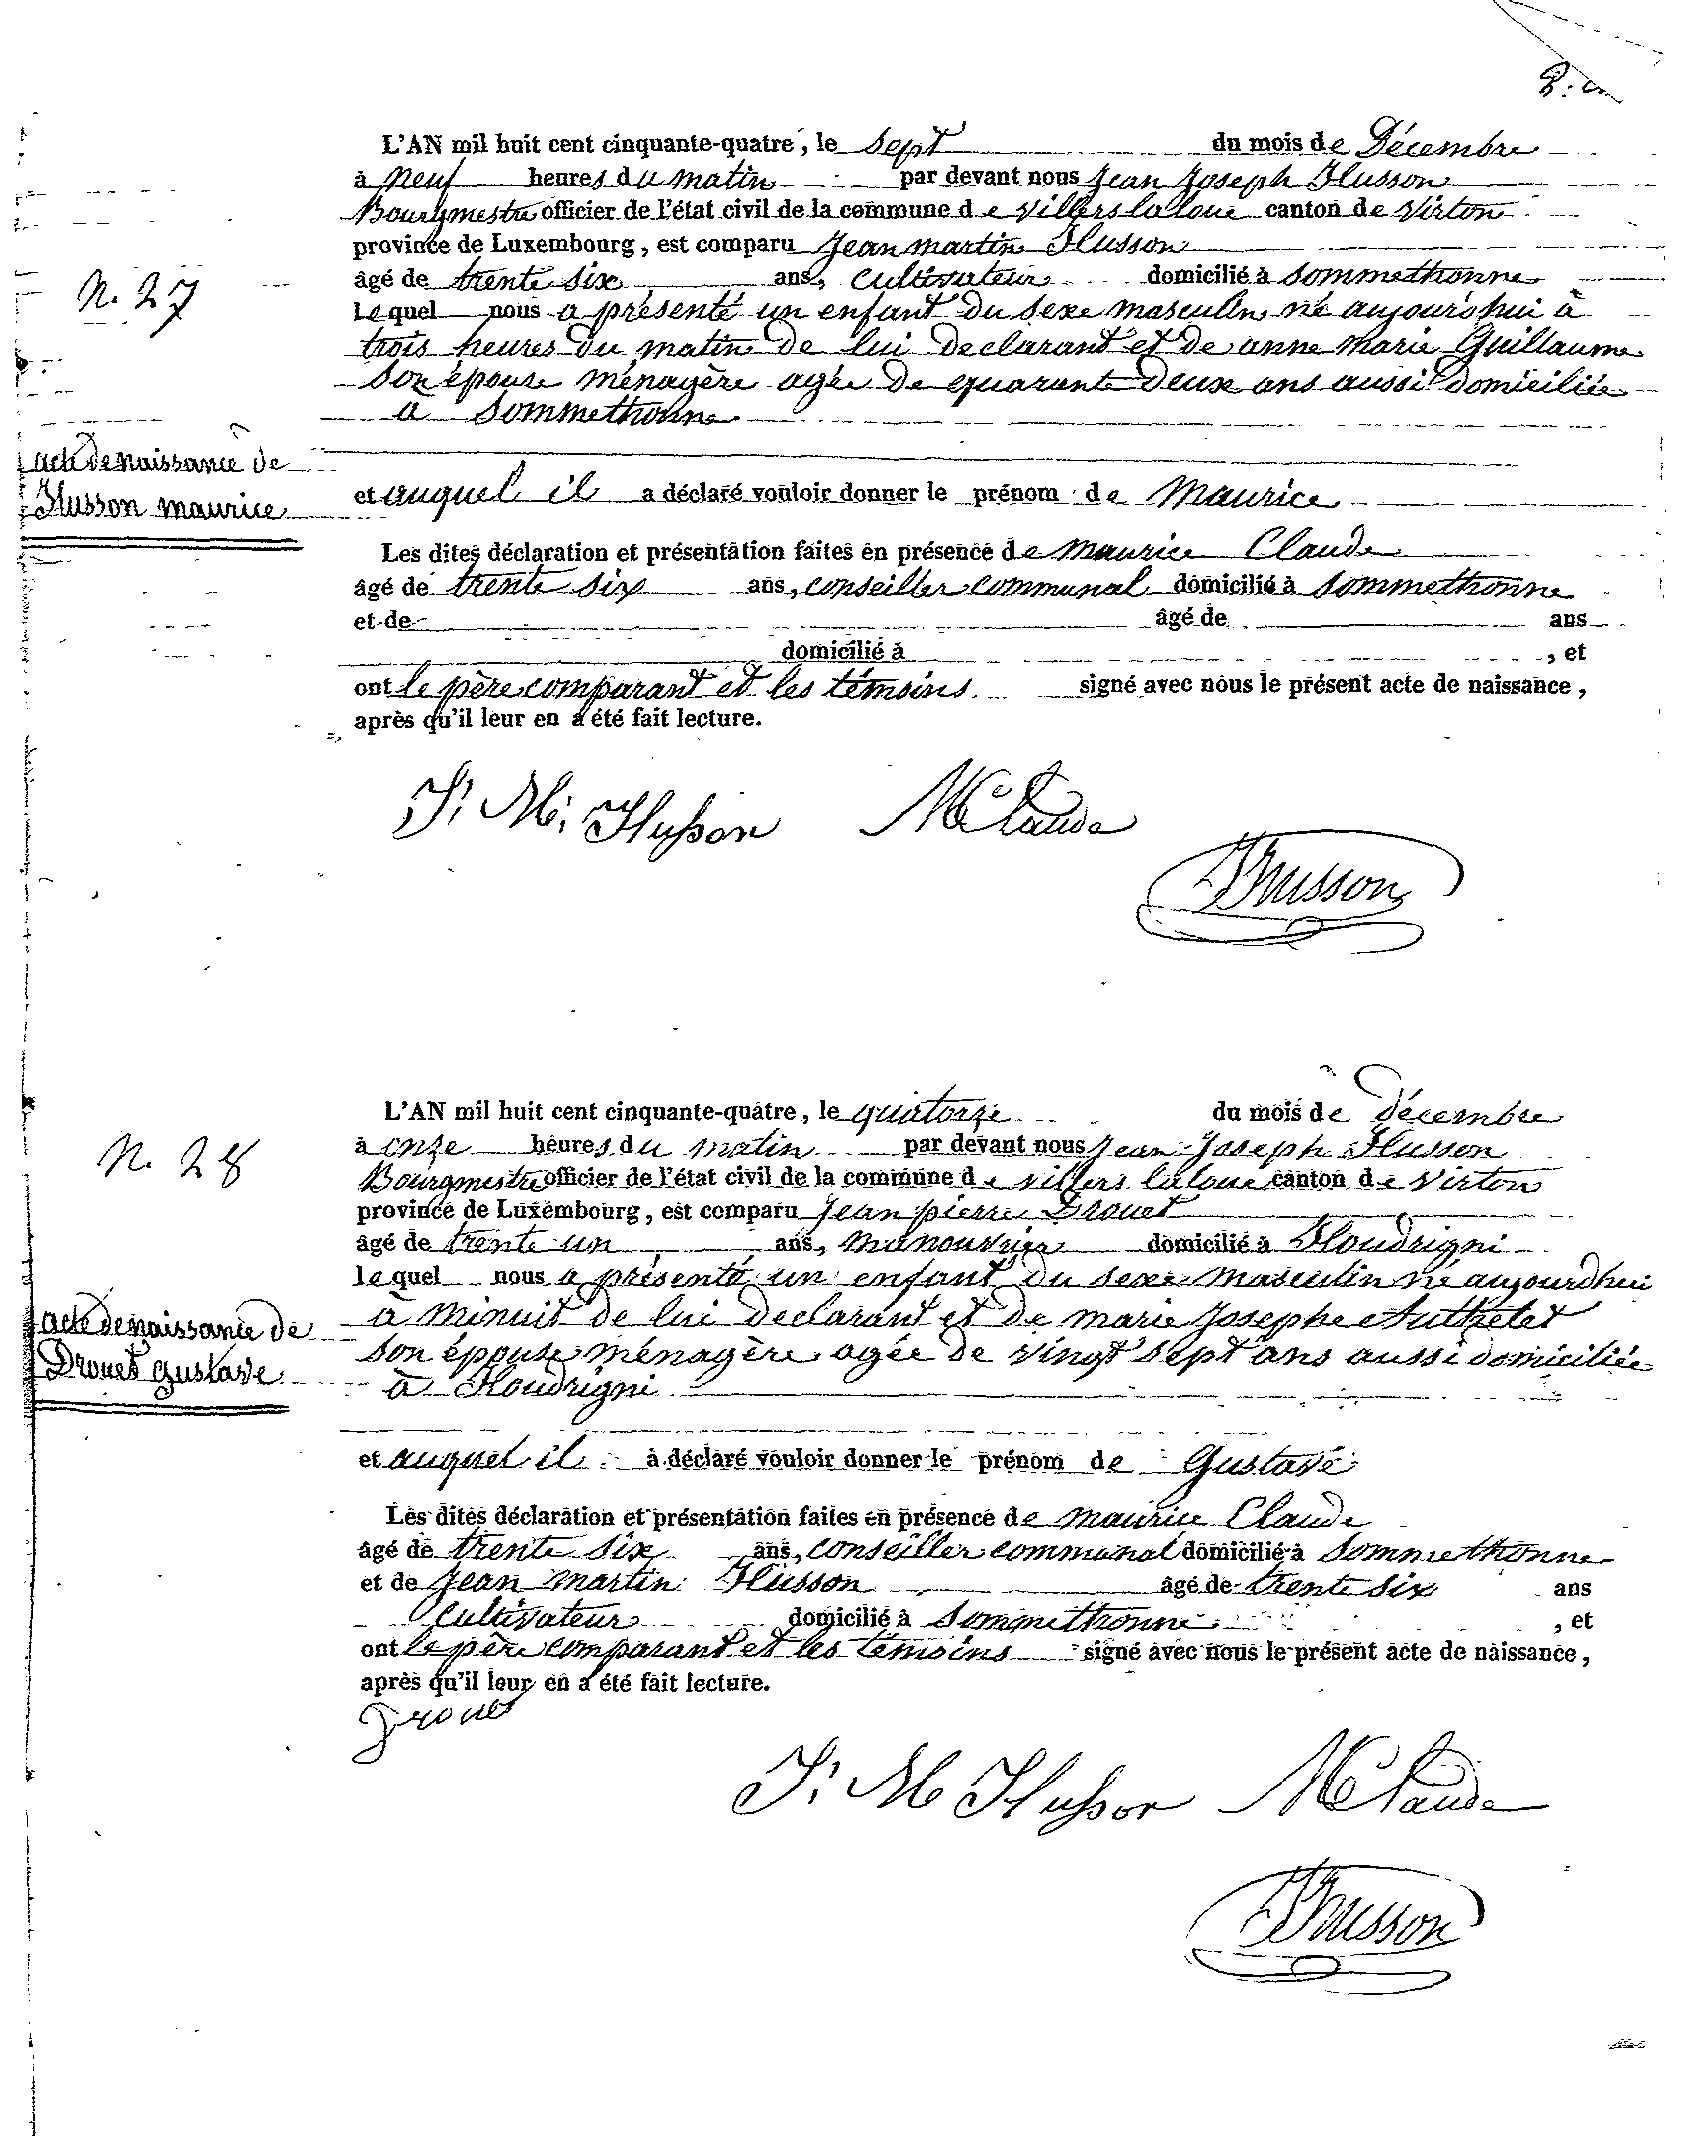 L'AN mil huit cent cinquante-quatre, le sept du mois de Décembre
à neuf heures du matin par devant nous Jean Joseph Husson
Bourgmestre officier de l'état civil de la commune de villers laloue canton de Virton
province de Luxembourg, est comparu Jean martin Husson
âgé de trente six ans, cultivateur domicilié à Sommethonne
N. 27
lequel nous a présenté un enfant du sexe masculin né aujourd'hui à
trois heures du matin de lui declarant et de anne marie Guillaume
son épouse ménagère agée de quarante deux ans aussi domiciliée
à Sommethonne
acte de naissance de
Husson maurice
et auquel il a déclaré vouloir donner le prénom de Maurice
Les dites déclaration et présentation faites en présence de maurice Claude
âgé de trente six ans, conseiller communal domicilié à Sommethonne
et de âgé de ans
domicilié à , et
ont le père comparant et les témoins signé avec nous le présent acte de naissance,
après qu'il leur en a été fait lecture.
J. M. Husson MClaude
Husson
L'AN mil huit cent cinquante-quatre, le quatorze du mois de décembre
N. 28
à onze heures du matin par devant nous Jean Joseph Husson
Bourgmestre officier de l'état civil de la commune de villers laloue canton de Virton
province de Luxembourg, est comparu Jean pierre Drouet
âgé de trente un ans, manouvrier domicilié à Houdrigni
lequel nous a présenté un enfant du sexe masculin né aujourdhui
à minuit de lui declarant et de marie Josephe Authelet
son épouse ménagère agée de vingt sept ans aussi domiciliée
à Houdrigni
acte de naissance de
Drouet gustave
et auquel il a déclaré vouloir donner le prénom de Gustave
Les dites déclaration et présentation faites en présence de maurice Claude
âgé de trente six ans, conseiller communal domicilié à Sommethonne
et de Jean martin Husson âgé de trente six ans
cultivateur domicilié à Sommethonne , et
ont le père comparant et les témoins signé avec nous le présent acte de naissance,
après qu'il leur en a été fait lecture.
Drouet
J. M Husson MClaude
Husson